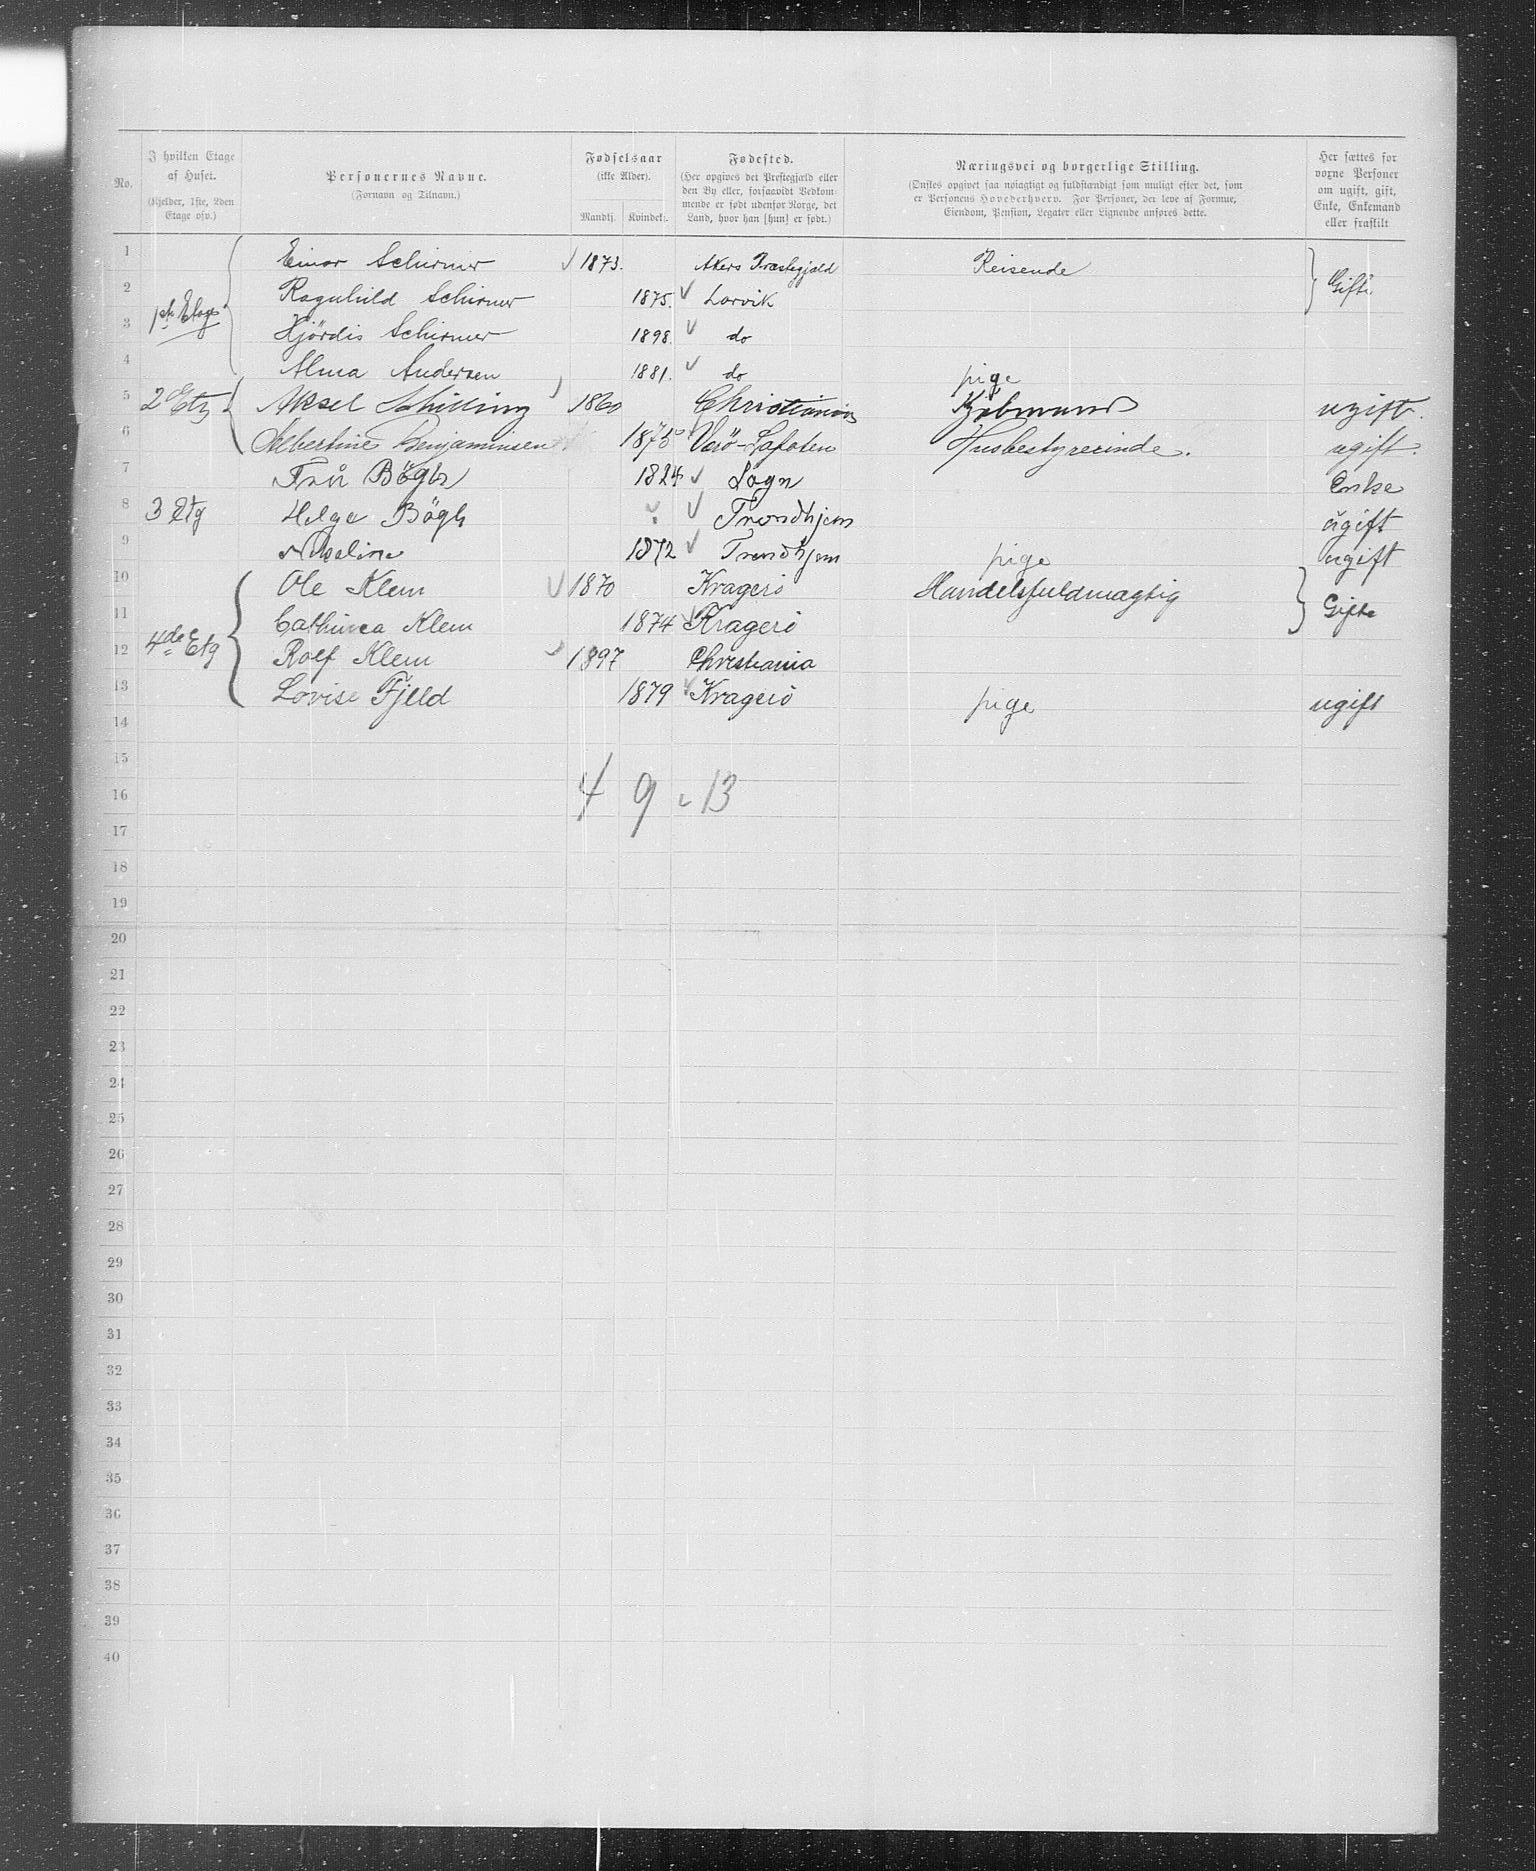 No.
I hvilken Etage af Huset.
(Kjelder, 1ste, 2den Etage osv.)
Personernes Navne.
(Fornavn og Tilnavn.)
Fødselsaar
(ikke Alder).
Mandkj. Kvindekj.
Fødested.
(Her opgives det Præstegjæld eller
den By eller, forsaavidt Vedkom-
mende er født udenfor Norge, det
Land, hvor han [hun] er født.)
Næringsvei og borgerlige Stilling.
(Ønskes opgivet saa nøiagtigt og fuldstændigt som muligt efter det, som
er Personens Hovederhverv. For Personer, der leve af Formue,
Eiendom, Pension, Legater eller Lignende anføres dette.
Her sættes for
vorne Personer
om ugift, gift,
Enke, Enkemand
eller fraskilt
1 Einar Schirmer 1873. Akers Præstegjæld Reisende Gift.
2 Ragnhild Schirmer 1875. Larvik
3 1ste Etage Hjördis Schirmer 1898. do
4 Alma Andersen 1881. do pige
5 2 Etg Aksel Schilling 1860 Christiania Kjøbmand ugift.
6 Albertine Benjaminsen 1875 Værö-Lofoten Husbestyrerinde. ugift.
7 Fru Bögh 1824 Sogn Enke
8 3 Etg Helga Bögh Trondhjem ugift
9 1872 Trondhjem pige ugift
10 Ole Klem 1870 Kragerö Handelsfuldmægtig Gifte
11 Cathinca Klem 1874 Kragerö
12 4de Etg Rolf Klem 1897 Christiania
13 Lovise Fjeld 1879 Kragerö pige ugift
14
15
16 4 9 = 13
17
18
19
20
21
22
23
24
25
26
27
28
29
30
31
32
33
34
35
36
37
38
39
40